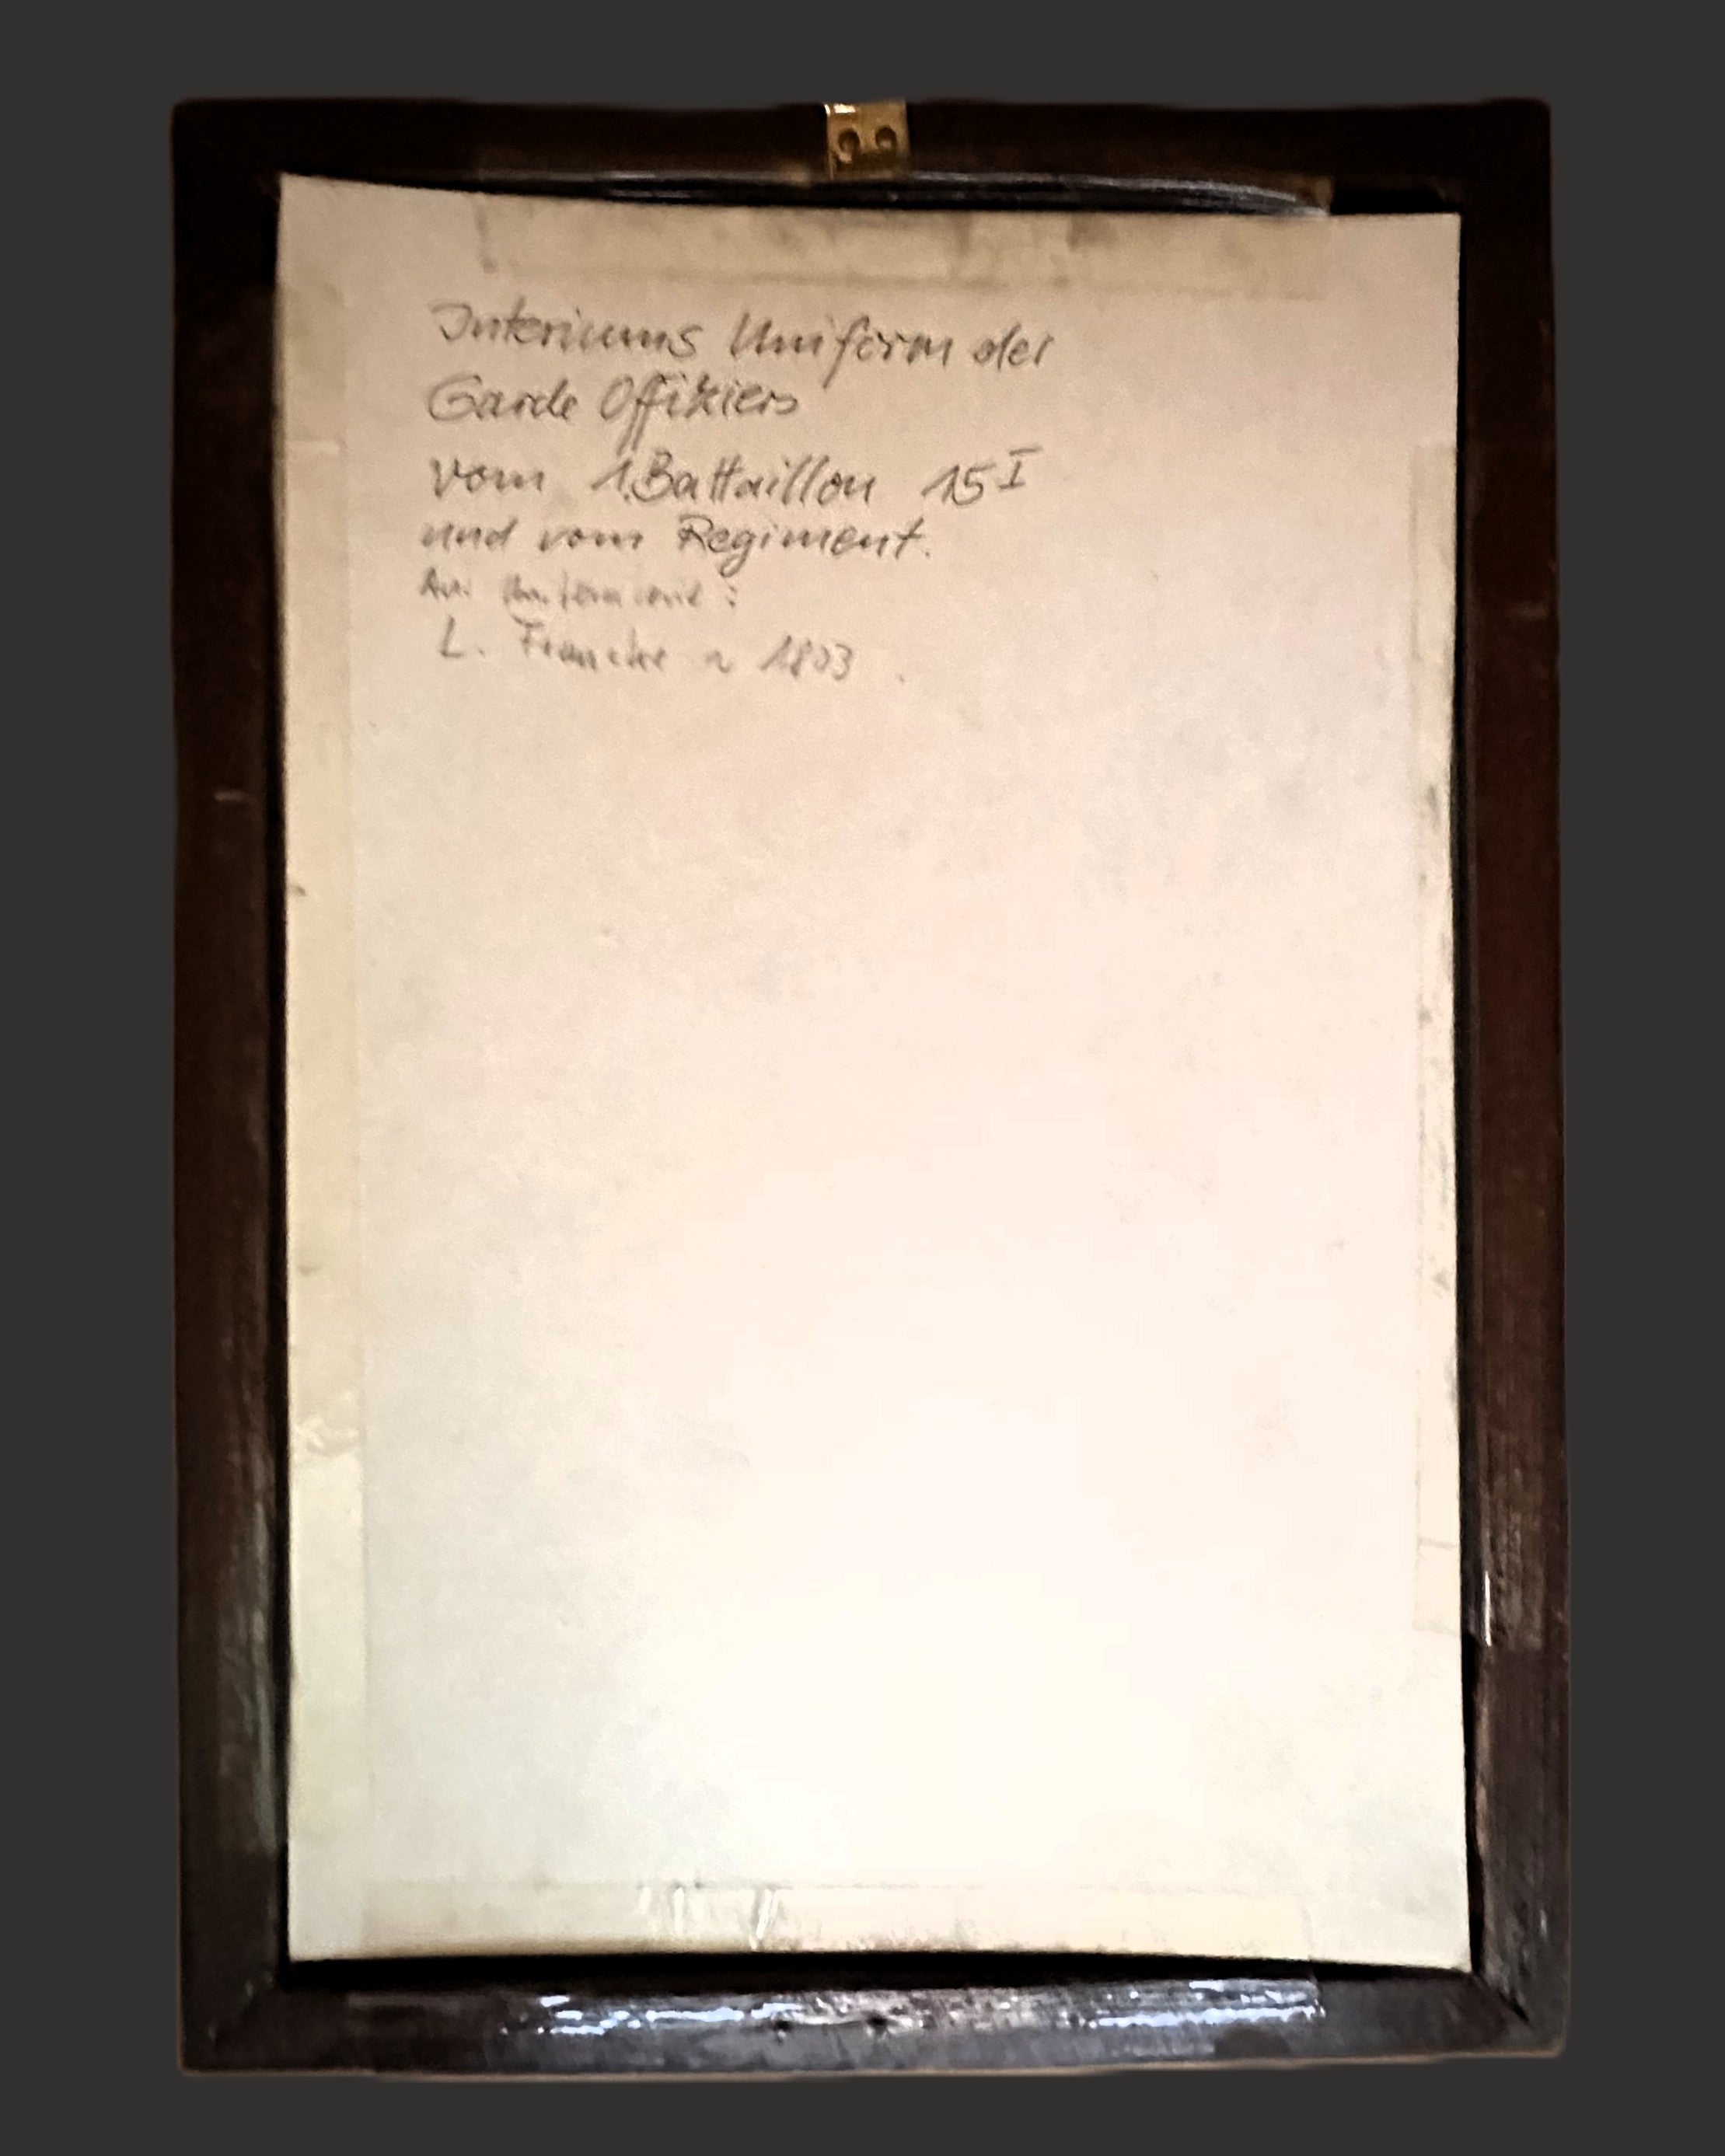 Interiums Uniform der
Garde Offiziers
vom 1. Battaillon 15 I
und vom Regiment.
L. Francke ~ 1803